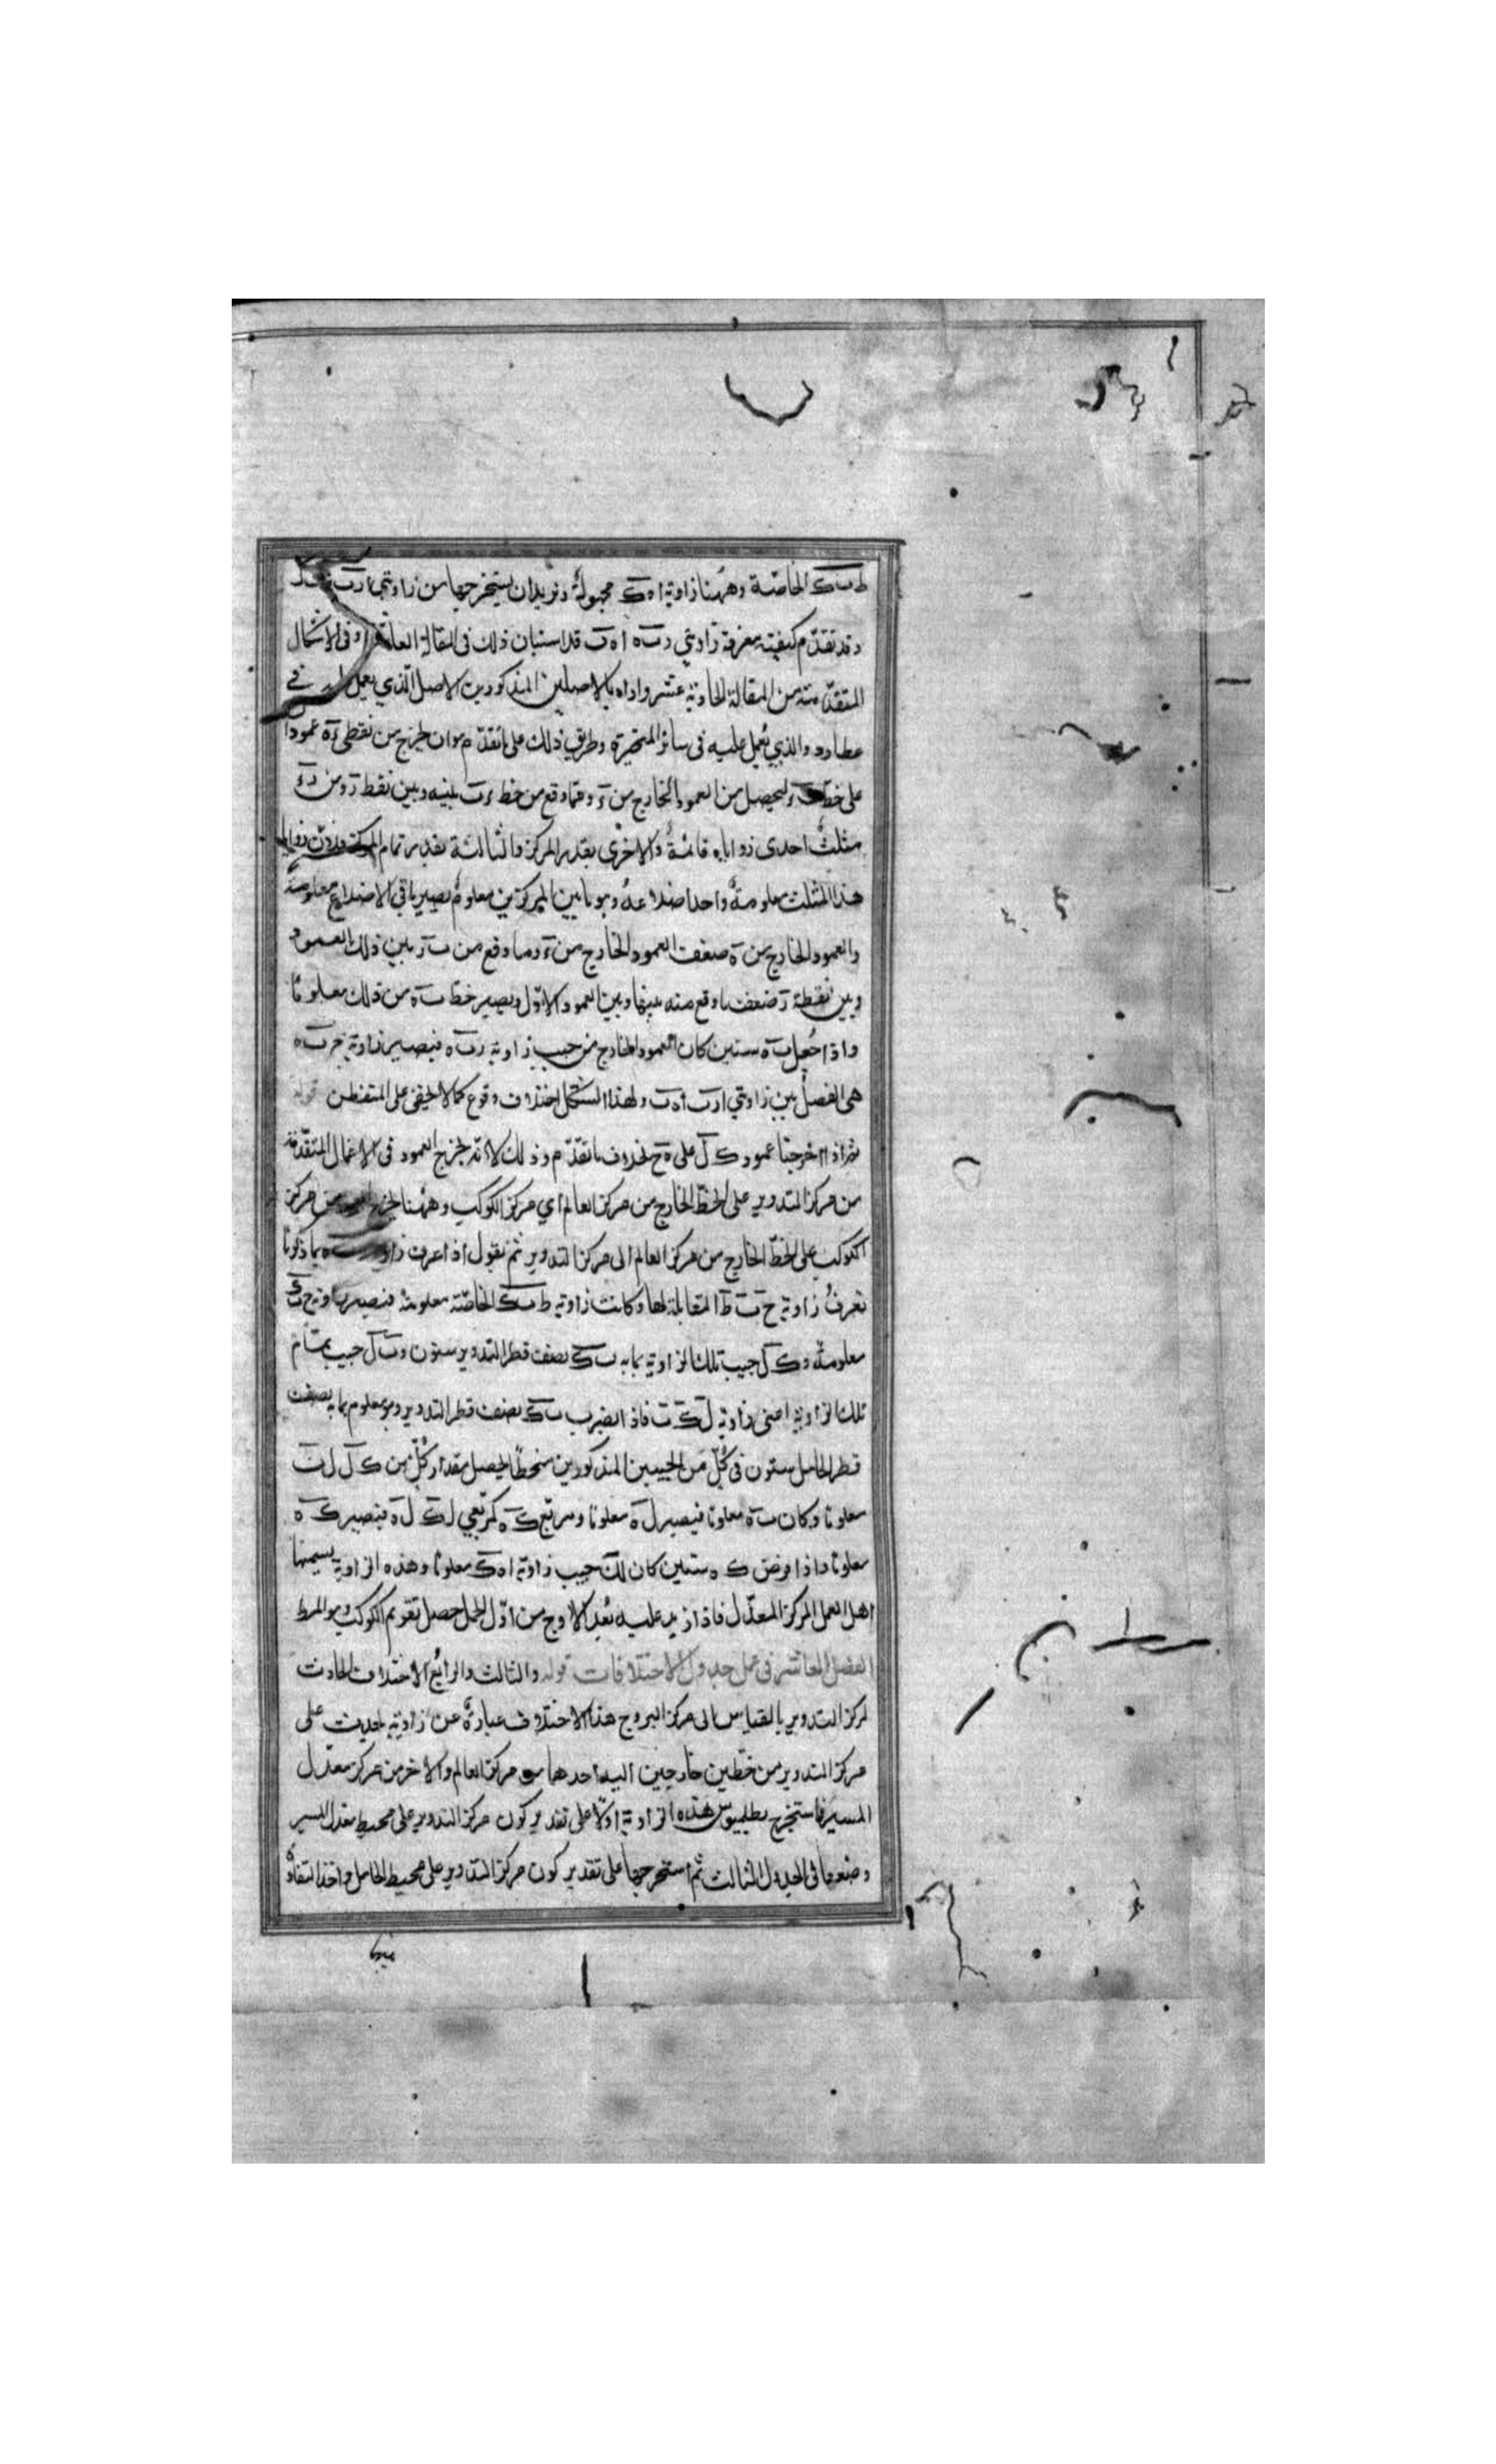 ط ب ك الخاصّة وههنا زاوية ا ه ك مجهولة ونريد ان يستخرجها من زاويتي ا ر ب
وقد تقدّم كيفيته معرفة زاويتي ر ب ه ا ه ب قد استبان ذلك فى المقالة وفى الاشكال
المتقدّمة من المقالة الحادية عشر واداه بالاصلين المذكورين الاصل الّذي يعمل فى
عطارد والذي يُعمل عليه فى سائر المتحيّرة وطريق ذلك على ما تقدّم هو ان يخرج من نقطتي ء ه عمودا
على خطّ ليحصل من العمود الخارج من ء وممّا وقع من خط ر ب بينه وبين نقطة ر ومن ر ء
مثلثٌ احدى زواياه قائمةٌ والاخرى بقدر المركز والثالثة بقدر تمام المركز
هذا المثلث معلومةٌ واحد اضلاعه وهو ما بين المركزين معلومٌ يصير باقي الاضلاع معلومة
والعمود الخارج من ه ضعف العمود الخارج من ء وما وقع من ب ر بين ذلك العمود
وبين نقطة ر ضعف ما وقع منه بينها وبين العمود الاوّل ويصير خطّ ب ه من ذلك معلومًا
واذا جُعل ب ه ستين كان العمود الخارج من جيب زاوية ر ب ه فيصير زاوية ر ب ه
هى الفضل بين زاويتي ا ر ب ا ه ب ولهذا الشكل اختلاف وقوع كما لا يخفى على المتفطن قوله
ثم اذا اخرجنا عمود ك ل على ه ح بخلاف ما تقدّم وذلك لانّه يخرج العمود فى الاعمال المتقدّمة
من مركز التدوير على الخطّ الخارج من مركز العالم أي مركز الكوكب وههنا يخرج من مركز
الكوكب على الخطّ الخارج من مركز العالم الى مركز التدوير ثم نقول اذا عرف زاوية بما ذكرنا
تعرفُ زاوية ح ب ط المقابلة لها وكانت زاوية ط ب ك الخاصّة معلومة فيصير زاوية ح ب ك
معلومةً و ك ل جيب تلك الزاوية بما به ب ك نصف قطر التدوير ستون و ب ل جيب تمام
تلك الزاوية اعنى زاوية ل ك ب فاذا ضرب ب ك نصف قطر التدوير وهو معلوم بما به نصف
قطر الحامل ستون فى كُلّ من الجيبين المذكورين منحطًا ليحصل مقدار كُلّ من ك ل ل ب
معلومًا وكان ب ه معلومًا فيصير ل ه معلومًا ومربّع ك ه كمربّعي ل ك ل ه فيصير ك ه
معلومًا واذا فرض ك ه ستين كان ل ك جيب زاوية ا ه ك معلومًا وهذه الزاوية يسميها
اهل العمل المركز المعدّل فاذا زيد عليه بُعد الاوج من اوّل الحمل حصل تقويم الكوكب وهو المط
الفصل العاشر فى عمل جدول الاختلافات قوله والثالث والرابع الاختلاف الحادث
لمركز التدوير بالقياس الى مركز البروج هذا الاختلاف عبارةٌ عن زاوية يحدث على
مركز التدوير من خطّين خارجين اليه احدهما من مركز العالم والآخر من مركز معدّل
المسير فاستخرج بطلميوس هذه الزاوية اوّلا على تقدير كون مركز التدوير على محيط معدّل المسير
وضعها فى الجدول الثالث ثم استخرجها على تقدير كون مركز التدوير على محيط الحامل واخذ التفاوُ